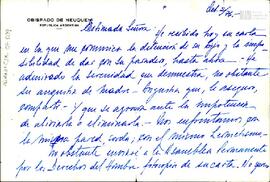 OBISPADO DE NEUQUEN
REPUBLICA ARGENTINA
Estimada Señora: He recibido hoy su carta
en la que me comunica la detención de su hijo, y la imposi
bilidad de dar con su paradero, hasta ahora. He
admirado la serenidad que demuestra, no obstante
su angustia de madre. Angustia que, le aseguro,
comparto. Y que se agrava ante la impotencia
de aliviarla o eliminarla. Nos enfrentamos con
la misma pared sorda, con el mismo
No obstante enviaré a la Asamblea Permanente
por los Derechos del Hombre fotocopia de su carta. No